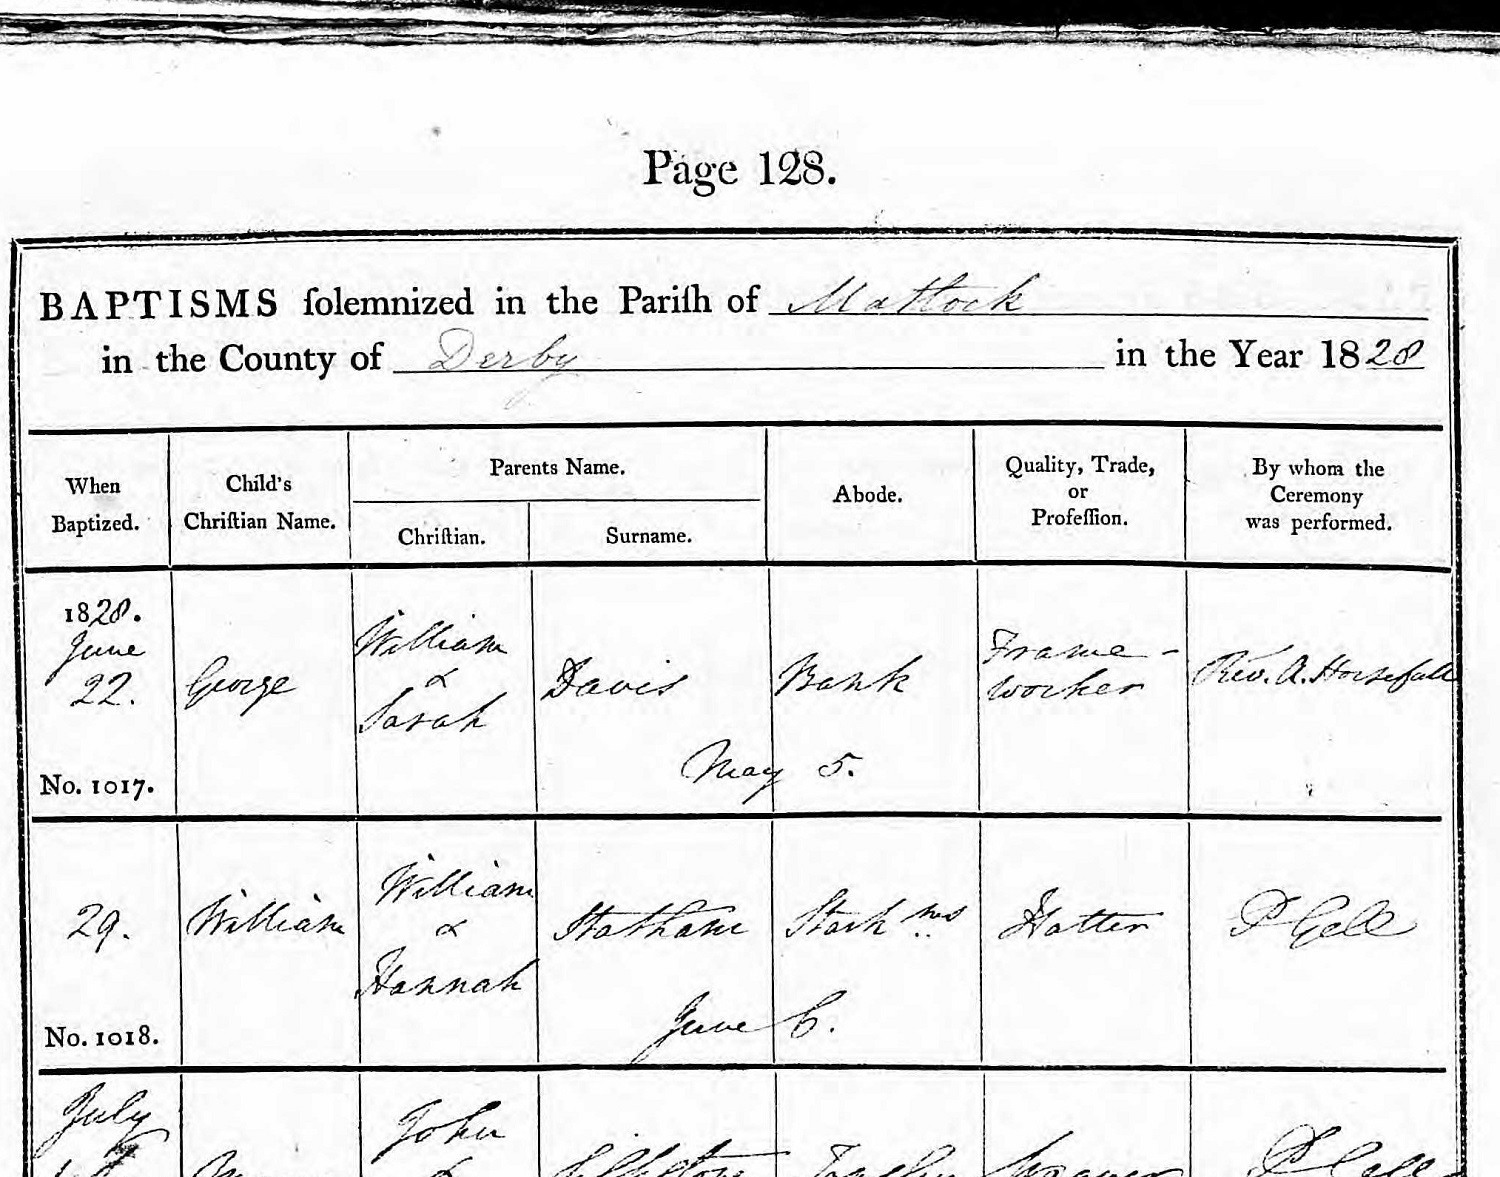 Page 128.
BAPTISMS ſolemnized in the Pariſh of Matlock
in the County of Derby in the Year 1828
When
Baptized.
Child's
Chriſtian Name.
Parents Name.
Chriſtian.
Surname.
Abode.
Quality, Trade,
or
Profeſſion.
By whom the
Ceremony
was performed.
1828.
June
22.
No. 1017.
George
William
&
Sarah
Davis
Bank
Frame-
worker
Rev. A. Horsefall
May 5.
29.
No. 1018.
William
William
&
Hannah
Statham
Stark
Hatter
P Gell
June 6.
July
John
&
P Gell